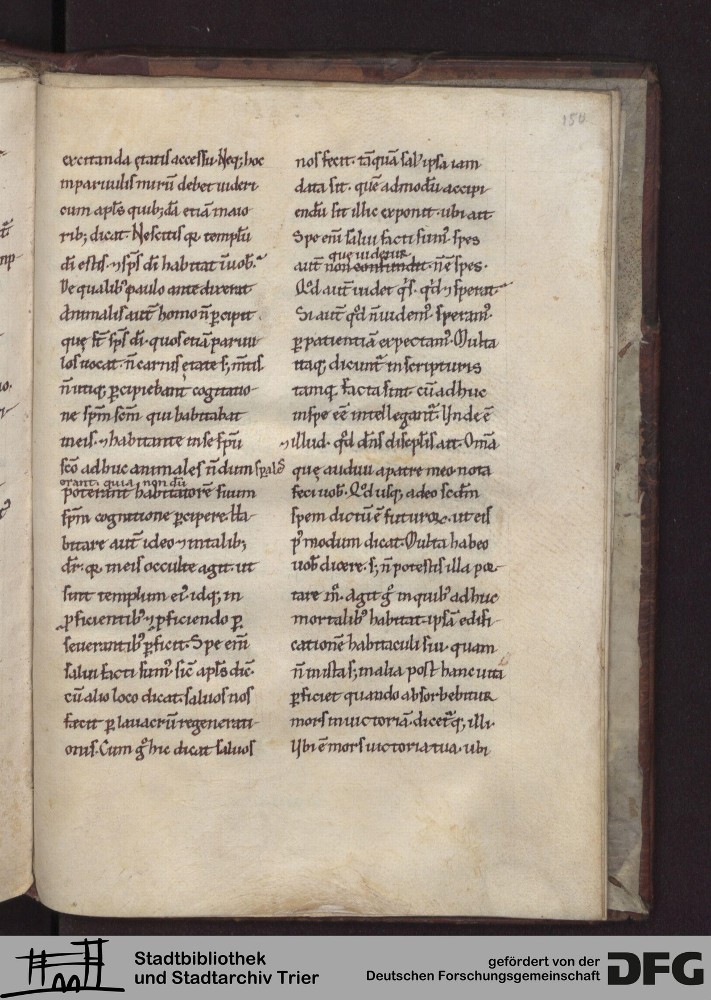 154
excitanda ętatis accessu. Neq; hoc
in paruulis mirū debet uideri
cum apłs quib;dā etiā maio
rib; dicat. Nescitis qꝫ templū
dī estis. ⁊ sp̄s dī habitat ī uob̄.
De qualib; paulo ante dixerat
Animalis aut̄ homo n̄ ꝑcipit
quę st̄ sp̄s dī. quos etiā paruu
los uocat. n̄ carnis ętate s; m̄tis.
n̄ utiq; ꝑcipiebant cogitatio
ne sp̄m sc̄m qui habitabat
in eis. ⁊ habitante in se sp̄u
sc̄o adhuc animales n̄dum sp̄ales
erant. quia nondū
poterant habitatorē suum
sp̄m cognitione ꝑcipere. Ha
bitare aut̄ ideo ⁊ in talib;
dr̄. qꝫ in eis occulte agit. ut
sint templum ei'. idq; in
ꝓficientib; ⁊ ꝓficiendo ꝑ
seuerantib; ꝑficit. Spe eni̅
salui facti sum'. sic̄ apłs dic̄.
cū alio loco dicat. saluos nos
fecit ꝑ lauacrū regenerati
onis. Cum gͦ hic dicat saluos
nos fecit. tāquā sal' ipsa iam
data sit. quē admodū accipi
endū sit illic exponit. ubi ait
Spe eni̅ salui facti sum'. Spes
que uidetur
aut̄ non confundit. n̄ ē spes.
Qd̄ aut̄ uidet q̄s. qd̄ ⁊ sperat.
Si aut̄ qd̄ n̄ uidem'. speram'.
ꝑ patientiā expectam'. Multa
itaq; dicunt̄ in scripturis
tamq̄ facta sint. cū adhuc
in spe eē intellegant̄. Unde ē
⁊ illud. qd̄ dn̄s discip̄lis ait. Om̄a
quę audiui a patre meo nota
feci uob̄. Qd̄ usq; adeo sc̄dm
spem dictū ē futuroꝝ. ut eis
p' modum dicat. Multa habeo
uob̄ dicere. s; n̄ potestis illa por
tare m̊. Agit gͦ in quib; adhuc
mortalib; habitat. ipsā edifi
cationē habitaculi sui. quam
n̄ in ista s; in alia post hanc uita
ꝑficiet quando absorbebitur
mors in uictoriā. dicet̄q; illi.
Ubi ē mors uictoria tua. ubi
Stadtbibliothek
und Stadtarchiv Trier
gefördert von der
Deutschen Forschungsgemeinschaft
DFG